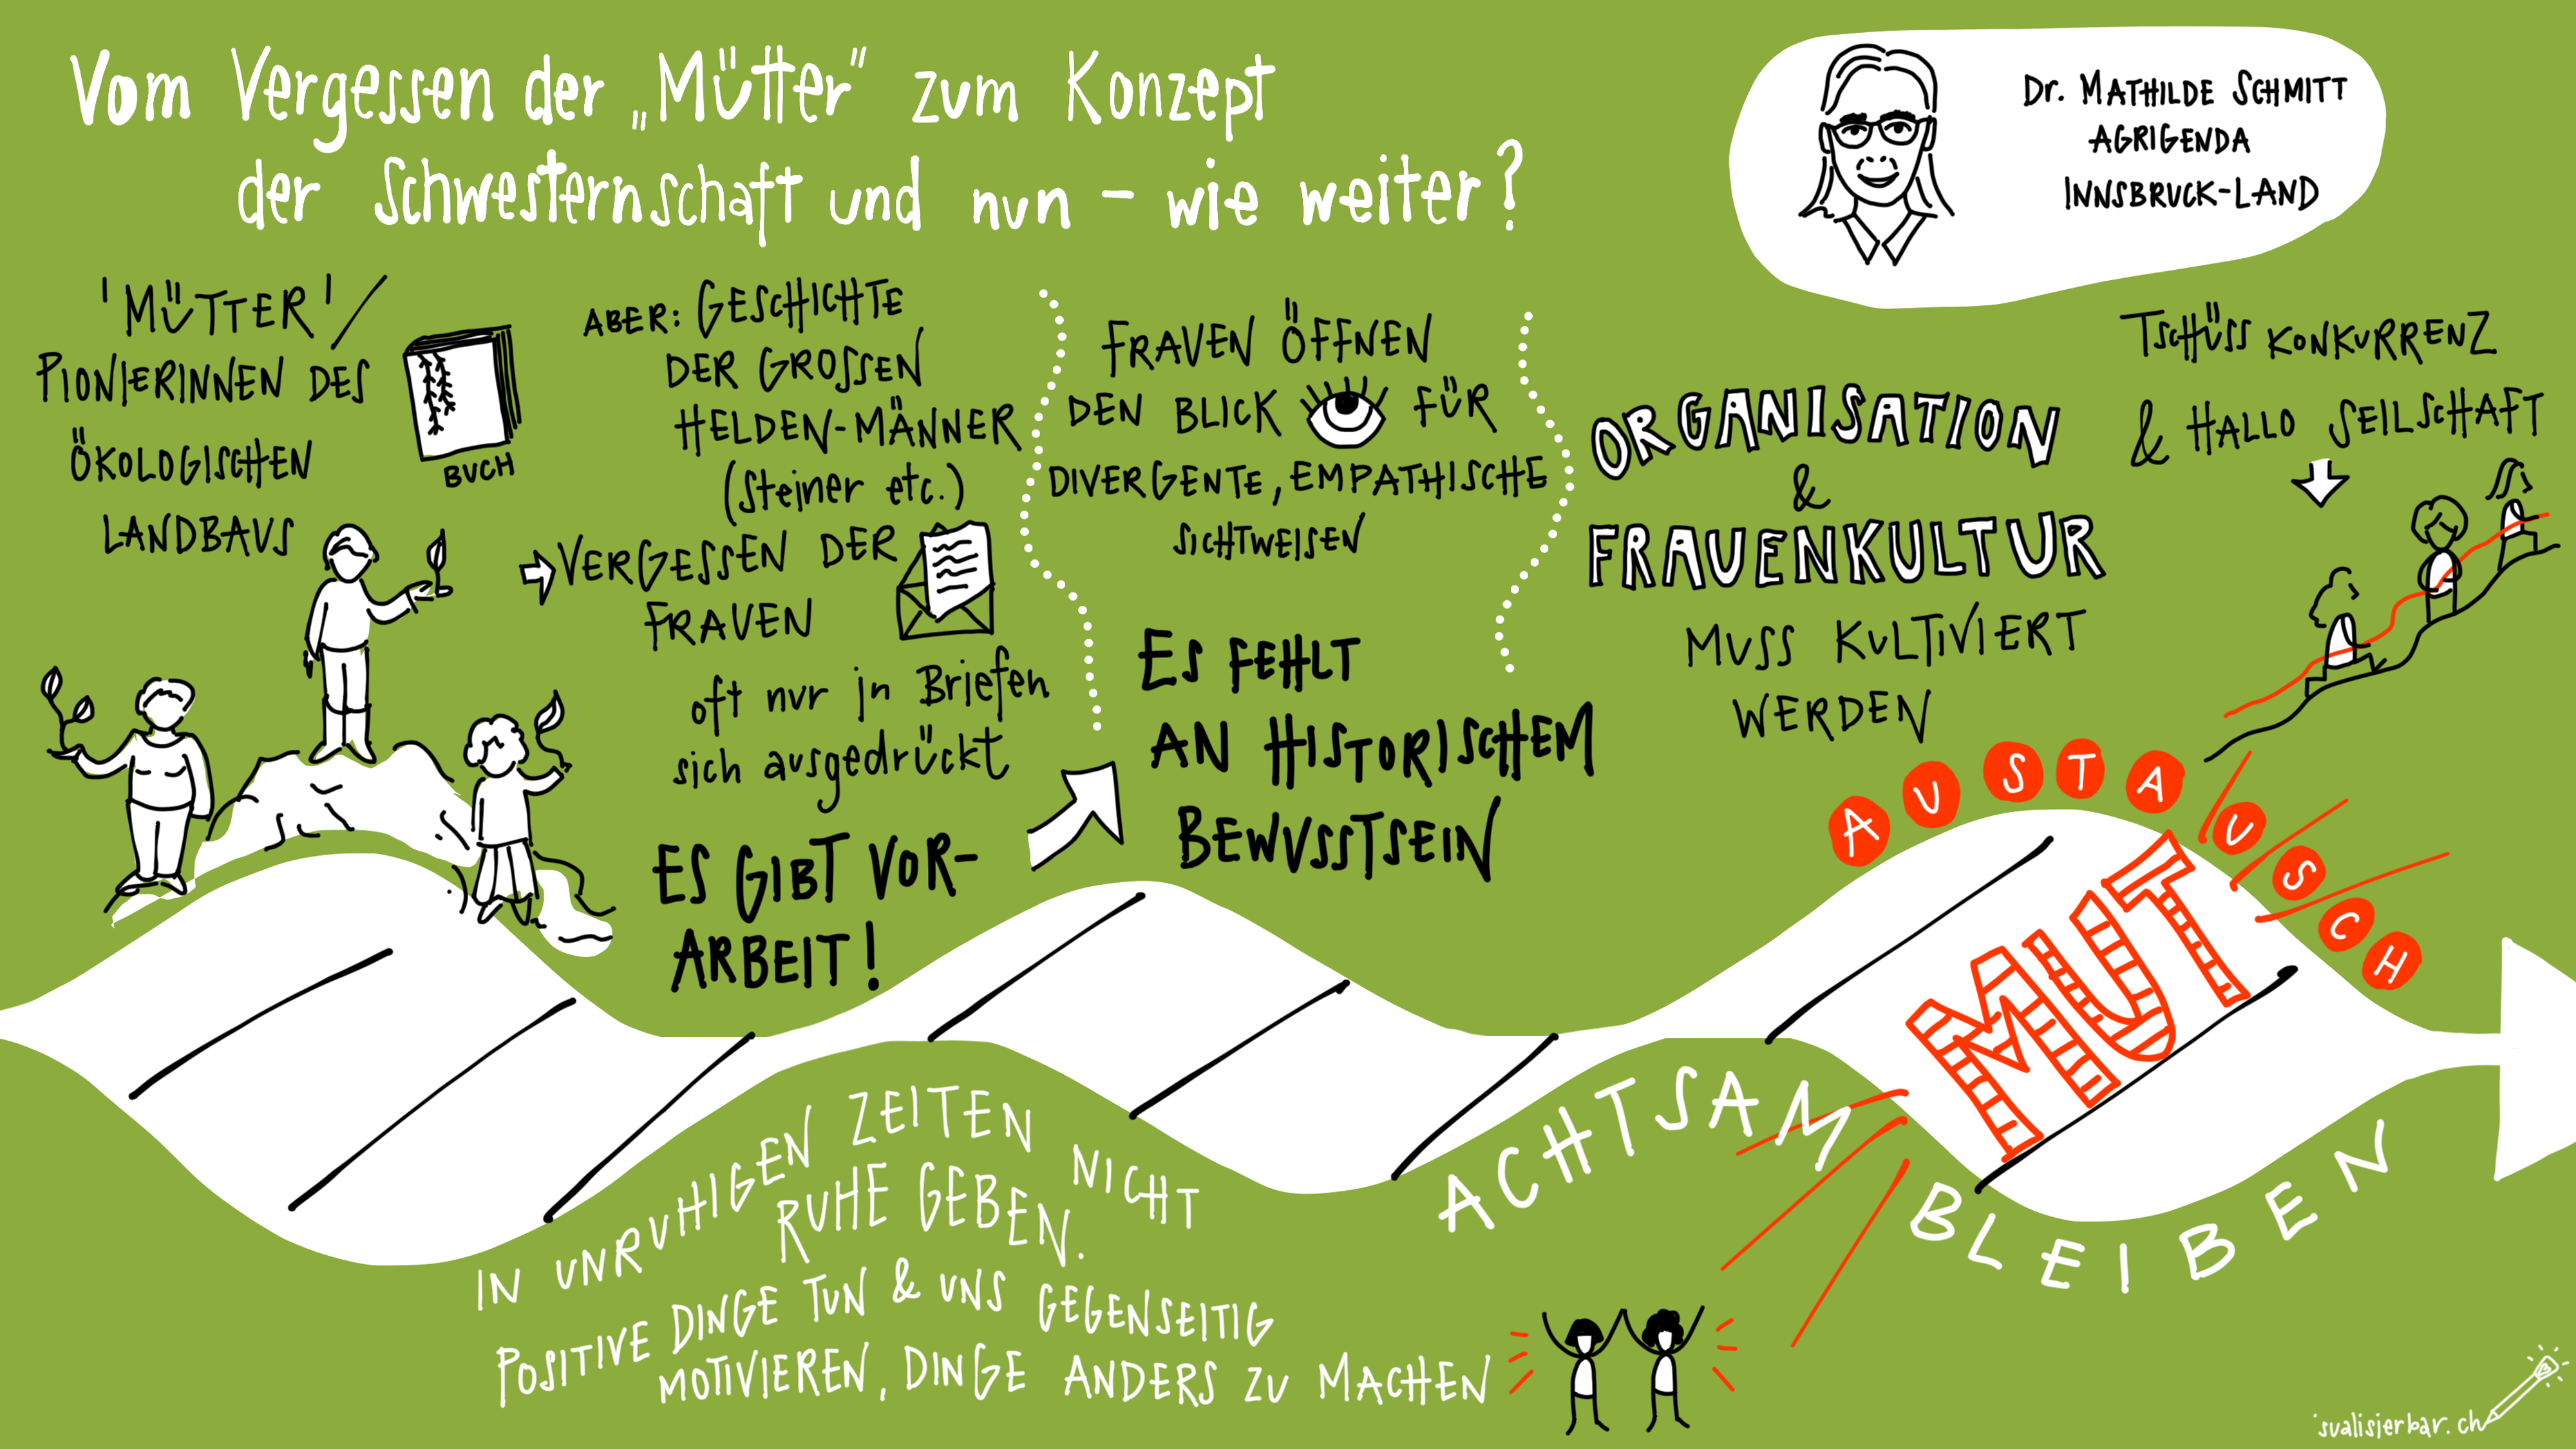 Vom Vergessen der „Mütter“ zum Konzept
der Schwesternschaft und nun – wie weiter?
Dr. MATHILDE SCHMITT
AGRIGENDA
INNSBRUCK-LAND
'MÜTTER'/
PIONIERINNEN DES
ÖKOLOGISCHEN
LANDBAUS
BUCH
ABER: GESCHICHTE
DER GROSSEN
HELDEN-MÄNNER
(Steiner etc.)
⇨ VERGESSEN DER
FRAUEN
oft nur in Briefen
sich ausgedrückt
ES GIBT VOR-
ARBEIT!
FRAUEN ÖFFNEN
DEN BLICK FÜR
DIVERGENTE, EMPATHISCHE
SICHTWEISEN
ES FEHLT
AN HISTORISCHEM
BEWUSSTSEIN
ORGANISATION
&
FRAUENKULTUR
MUSS KULTIVIERT
WERDEN
TSCHÜSS KONKURRENZ
& HALLO SEILSCHAFT
AUSTAUSCH
MUT
ACHTSAM BLEIBEN
IN UNRUHIGEN ZEITEN NICHT
RUHE GEBEN.
POSITIVE DINGE TUN & UNS GEGENSEITIG
MOTIVIEREN, DINGE ANDERS ZU MACHEN
'sualisierbar.ch